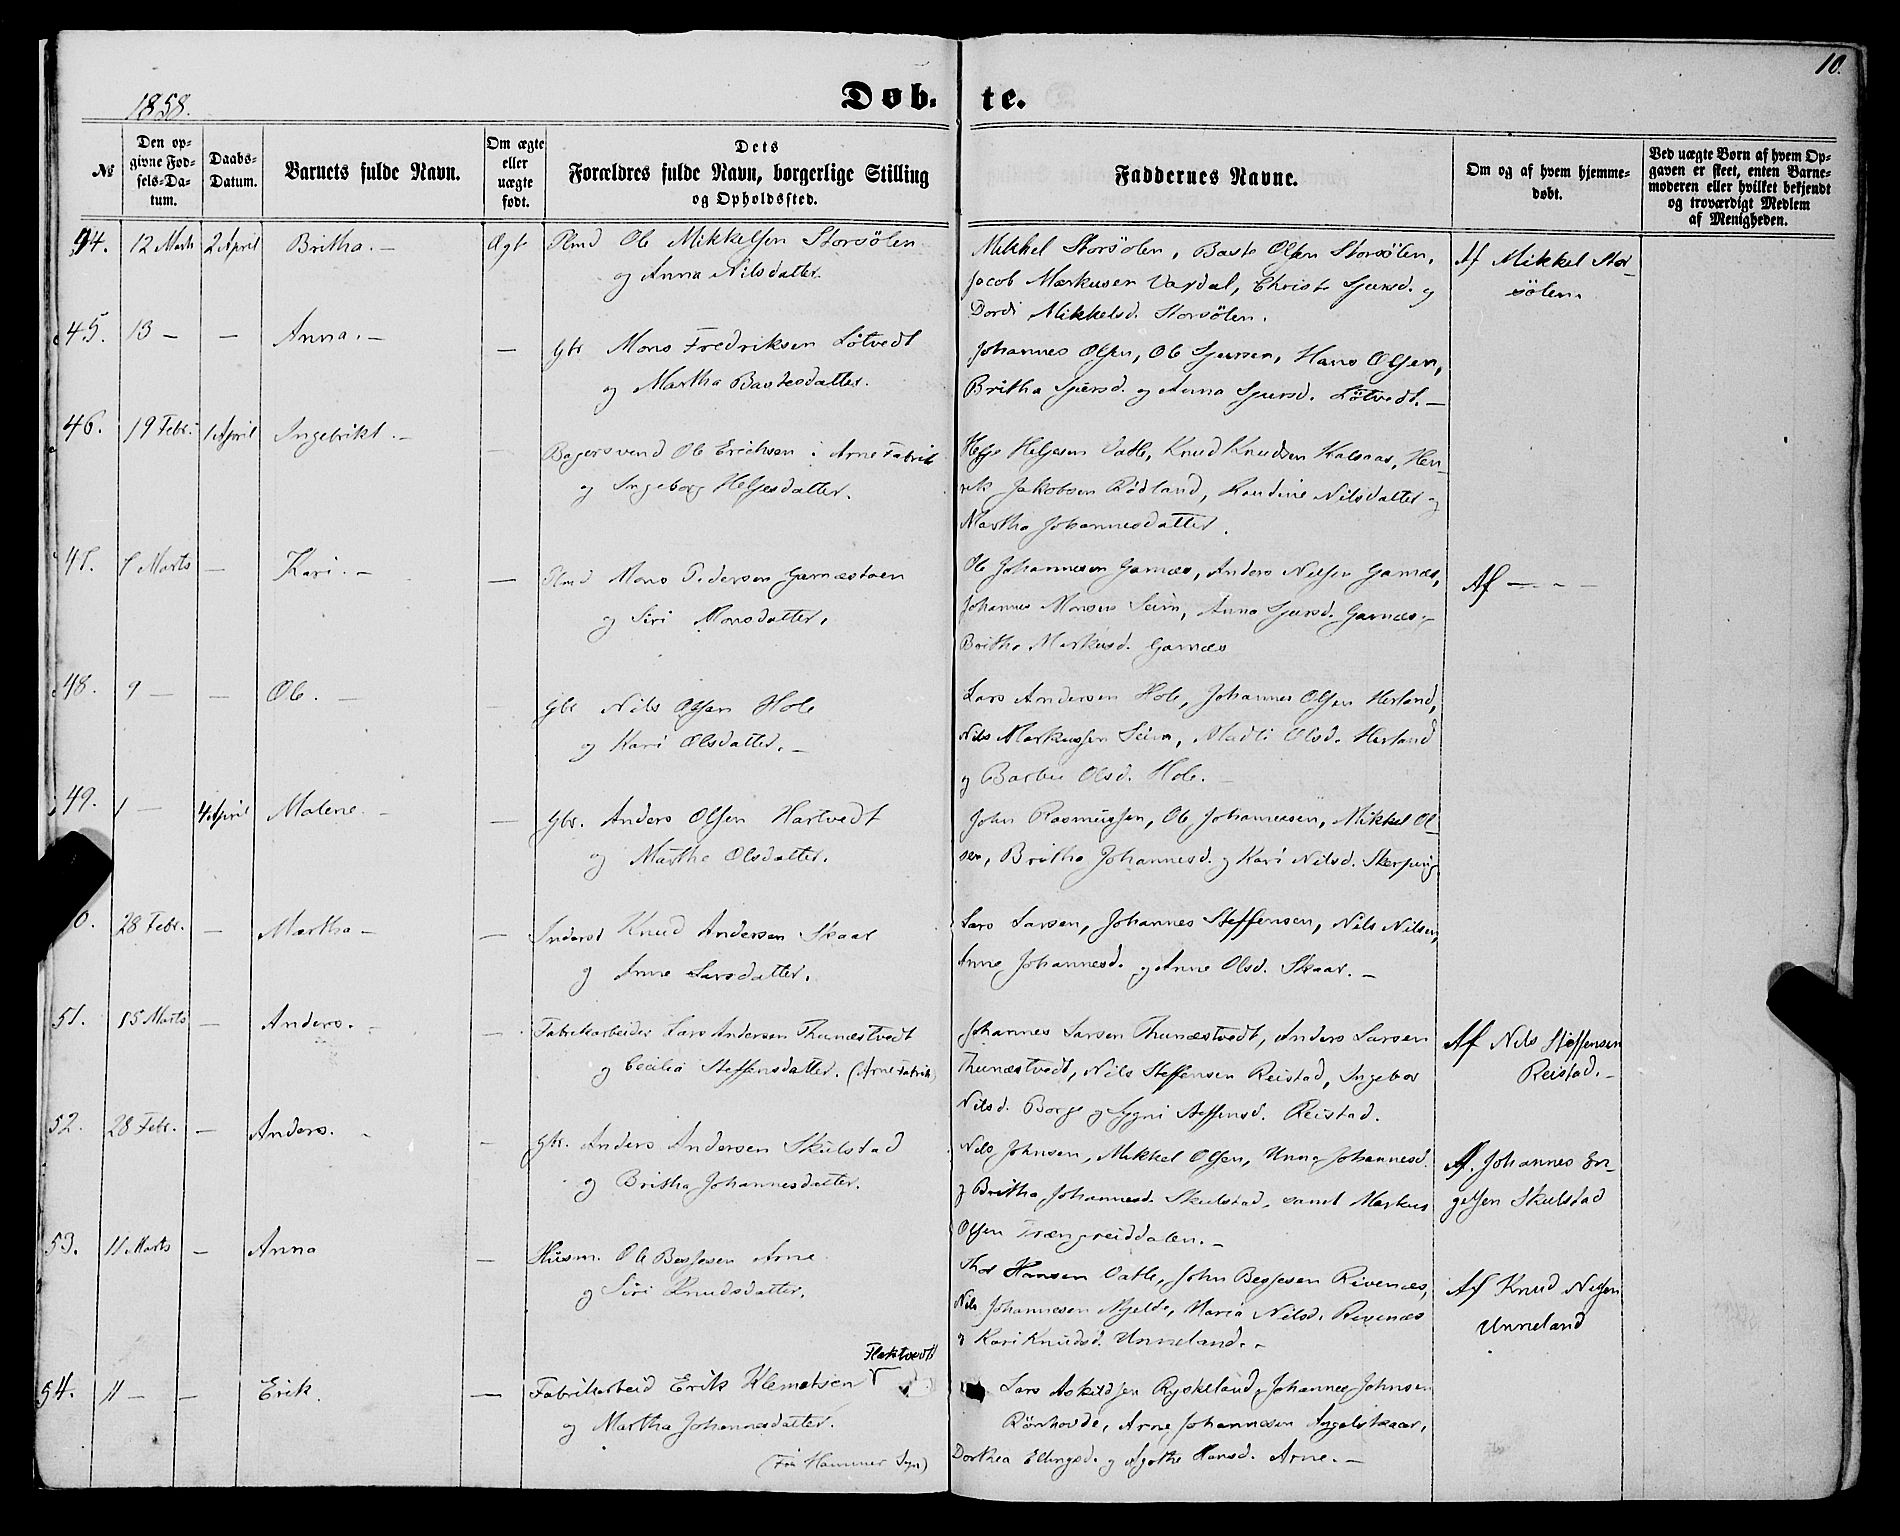 10.
1858.
Døb- te.
№
Den op-
givne Fød-
sels-Da-
tum.
Daabs-
Datum.
Barnets fulde Navn.
Om ægte
eller
uægte
født.
Dets
Forældres fulde Navn, borgerlige Stilling
og Opholdssted.
Faddernes Navne.
Om og af hvem hjemme-
døbt.
Ved uægte Børn af hvem Op-
gaven er skeet, enten Barne-
moderen eller hvilket bekjendt
og troværdigt Medlem
af Menigheden.
44. 12 Marts 2 April Britha. — Ægte Plmd Ole Mikkelsen Storsölen
og Anna Nilsdatter.
Mikkel Storsölen, Baste Olsen Storsölen,
Jacob Markusen Vardal, Christe Sjursd. og
Dordi Mikkelsd. Storsölen.
Af Mikkel Stor-
sölen.
45. 13 — — Anna. — — Gbr Mons Fredriksen Lötvedt
og Martha Bastesdatter.
Johannes Olsen, Ole Sjursen, Hans Olsen,
Britha Sjursd. og Anna Sjursd. Lötvedt. —
46. 19 Febr. 1 April Ingebrikt. — — Bagersvend Ole Erichsen i Arne Fabrik
og Ingeborg Helgesdatter.
Helge Helgesen Vatle, Knud Knudsen Kalsaas, Hen-
rik Jakobsen Rödland, Randine Nilsdatter og
Martha Johannesdatter.
47. 7 Marts — Kari. — — Plmd Mons Pedersen Garnæstoen
og Siri Monsdatter.
Ole Johannesen Garnæs, Anders Nilsen Garnæs,
Johannes Monsen Seim, Anna Sjursd. Garnæs og
Britha Markusd. Garnæs
Af — — —
48. 9 — — Ole. — — Gbr Nils Olsen Hole
og Kari Olsdatter. —
Lars Andersen Hole, Johannes Olsen Herland,
Nils Markussen Seim, Madli Olsd. Herland
og Barbru Olsd. Hole. —
49. 1 — 4 April Malene. — — Gbr. Anders Olsen Hartvedt
og Martha Olsdatter.
John Rasmussen, Ole Johannesen, Mikkel Ol-
sen, Britha Johannesd. og Kari Nilsd. Skerping
0. 28 Febr. — Martha — — Inderst Knud Andersen Skaar
og Anne Larsdatter.
Lars Larsen, Johannes Steffensen, Nils Nilsen,
Anne Johannesd. og Anne Olsd. Skaar. —
51. 15 Marts — Anders. — — Fabrikarbeider Lars Andersen Thunæstvedt
og Cecilia Steffensdatter. (Arne Fabrik)
Johannes Larsen Thunæstvedt, Anders Larsen
Thunæstvedt, Nils Steffensen Reistad, Ingebor
Nilsd. Borge og Sygni Steffensd. Reistad.
Af Nils Steffensen
Reistad. —
52. 28 Febr. — Anders. — — Gbr. Anders Andersen Skulstad
og Britha Johannesdatter.
Nils Johnsen, Mikkel Olsen, Unna Johannesd.
og Britha Johannesd. Skulstad, samt Markus
Olsen Trængreiddalen. —
Af. Johannes En-
gelsen Skulstad
53. 11 Marts — Anna — Husm. Ole Besjesen Arne
og Siri Knudsdatter.
Thor Hansen Vatle, John Besjesen Rivenæs,
Nils Johannesen Mjelde, Maria Nilsd. Rivenæs
og Kari Knudsd. Unneland. —
Af Knud Nilsen
Unneland
54. 11 — — Erik. — Fabrikarbeid Erik Klemetsen Flaktvedt
og Martha Johannesdatter.
(Fra Hammer Sgn)
Lars Askildsen Ryskeland, Johannes Johnsen
Rönhovde, Arne Johannesen Aygelskaar,
Dorthea Ellingsd. og Agathe Hansd. Arne. —